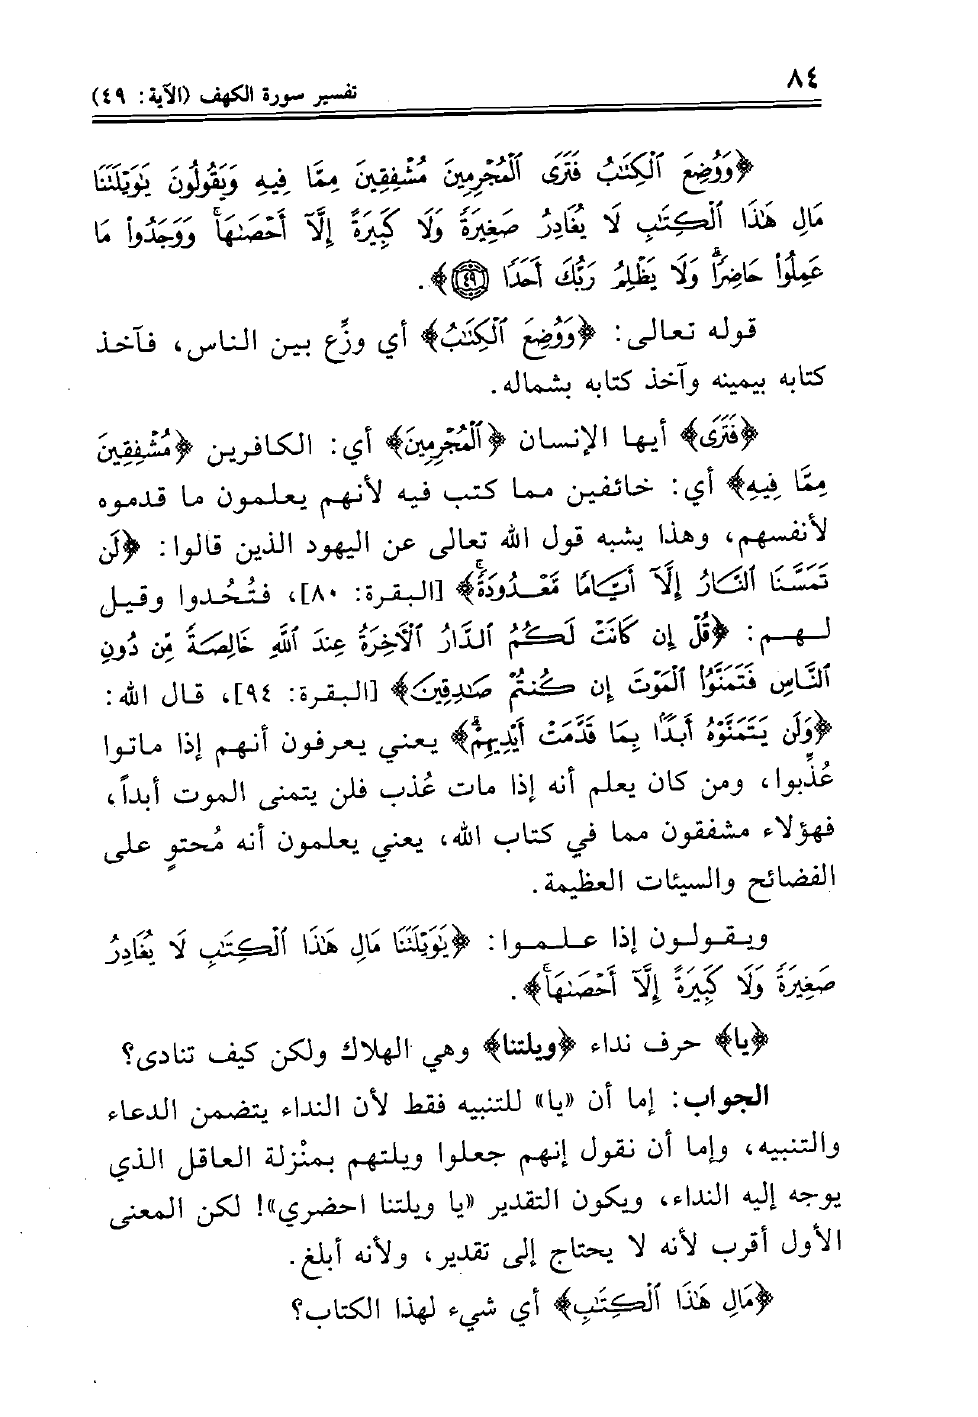 ٨٤
تفسير سورة الكهف (الآية: ٤٩)
﴿وَوُضِعَ ٱلْكِتَٰبُ فَتَرَى ٱلْمُجْرِمِينَ مُشْفِقِينَ مِمَّا فِيهِ وَيَقُولُونَ يَٰوَيْلَتَنَا
مَالِ هَٰذَا ٱلْكِتَٰبِ لَا يُغَادِرُ صَغِيرَةً وَلَا كَبِيرَةً إِلَّآ أَحْصَىٰهَا ۚ وَوَجَدُوا۟ مَا
عَمِلُوا۟ حَاضِرًا ۗ وَلَا يَظْلِمُ رَبُّكَ أَحَدًا ٤٩﴾.
قوله تعالى: ﴿وَوُضِعَ ٱلْكِتَٰبُ﴾ أي وزِّع بين الناس، فآخذ
كتابه بيمينه وآخذ كتابه بشماله.
﴿فَتَرَى﴾ أيها الإنسان ﴿ٱلْمُجْرِمِينَ﴾ أي: الكافرين ﴿مُشْفِقِينَ
مِمَّا فِيهِ﴾ أي: خائفين مما كتب فيه لأنهم يعلمون ما قدموه
لأنفسهم، وهذا يشبه قول الله تعالى عن اليهود الذين قالوا: ﴿لَن
تَمَسَّنَا ٱلنَّارُ إِلَّآ أَيَّامًا مَّعْدُودَةً ۚ﴾ [البقرة: ٨٠]، فتُحُدوا وقيل
لهم: ﴿قُلْ إِن كَانَتْ لَكُمُ ٱلدَّارُ ٱلْءَاخِرَةُ عِندَ ٱللَّهِ خَالِصَةً مِّن دُونِ
ٱلنَّاسِ فَتَمَنَّوُا۟ ٱلْمَوْتَ إِن كُنتُمْ صَٰدِقِينَ﴾ [البقرة: ٩٤]، قال الله:
﴿وَلَن يَتَمَنَّوْهُ أَبَدًۢا بِمَا قَدَّمَتْ أَيْدِيهِمْ ۗ﴾ يعني يعرفون أنهم إذا ماتوا
عُذِّبوا، ومن كان يعلم أنه إذا مات عُذب فلن يتمنى الموت أبداً،
فهؤلاء مشفقون مما في كتاب الله، يعني يعلمون أنه مُحتوٍ على
الفضائح والسيئات العظيمة.
ويقولون إذا علموا: ﴿يَٰوَيْلَتَنَا مَالِ هَٰذَا ٱلْكِتَٰبِ لَا يُغَادِرُ
صَغِيرَةً وَلَا كَبِيرَةً إِلَّآ أَحْصَىٰهَا ۚ﴾.
﴿يا﴾ حرف نداء ﴿ويلتنا﴾ وهي الهلاك ولكن كيف تنادى؟
الجواب: إما أن «يا» للتنبيه فقط لأن النداء يتضمن الدعاء
والتنبيه، وإما أن نقول إنهم جعلوا ويلتهم بمنْزلة العاقل الذي
يوجه إليه النداء، ويكون التقدير «يا ويلتنا احضري»! لكن المعنى
الأول أقرب لأنه لا يحتاج إلى تقدير، ولأنه أبلغ.
﴿مَالِ هَٰذَا ٱلْكِتَٰبِ﴾ أي شيء لهذا الكتاب؟